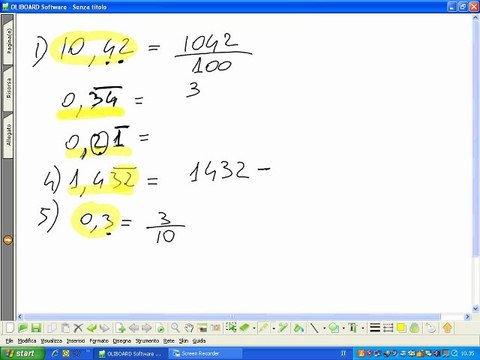 OLIBOARD Software - Senza titolo
Pagina(e)
Risorsa
Allegato
1) 10,42 = 1042/100
0,3̅4̅ = 3
0,21̅ =
4) 1,43̅2̅ = 1432 -
5) 0,3 = 3/10
File Modifica Visualizza Inserisci Formato Disegna Strumento Rete Skin Guida
start
OLIBOARD Software ...
Screen Recorder
IT
10.35